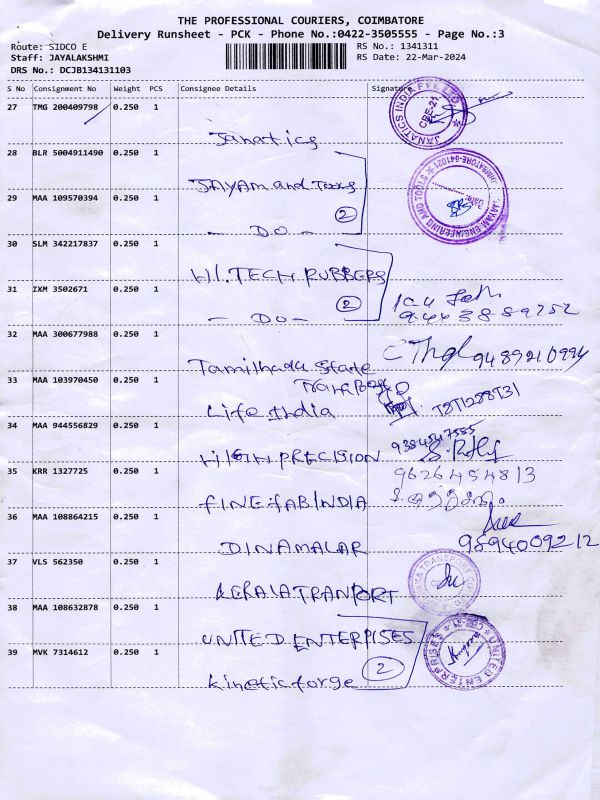 THE PROFESSIONAL COURIERS, COIMBATORE
Delivery Runsheet - PCK - Phone No.:0422-3505555 - Page No.:3
Route: SIDCO E
RS No.: 1341311
Staff: JAYALAKSHMI
RS Date: 22-Mar-2024
DRS No.: DCJB134131103
S No Consignment No Weight PCS Consignee Details Signature
27 TMG 200409798 0.250 1
Janatics
JANATICS INDIA PVT. LTD
CBE-21
28 BLR 5004911490 0.250 1
JAYAM and Tools
29 MAA 109570394 0.250 1
- DO -
2
JAYAM ENGINEERING AND TOOLS
COIMBATORE-641021
Date:
30 SLM 342217837 0.250 1
HI.TECH RUBBERS
31 IXM 3502671 0.250 1
- DO -
2
32 MAA 300677988 0.250 1
Tamilnadu State
Transport
9489210994
33 MAA 103970450 0.250 1
Life India
34 MAA 944556829 0.250 1
HIGH PRECISION
9384547585
35 KRR 1327725 0.250 1
FINE FAB INDIA
9626454813
36 MAA 108864215 0.250 1
DINAMALAR
9894009212
37 VLS 562350 0.250 1
KERALA TRANPORT
38 MAA 108632878 0.250 1
UNITED ENTERPRISES
39 MVK 7314612 0.250 1
kinetic forge
2
UNITED ENTERPRISES
CBE-21